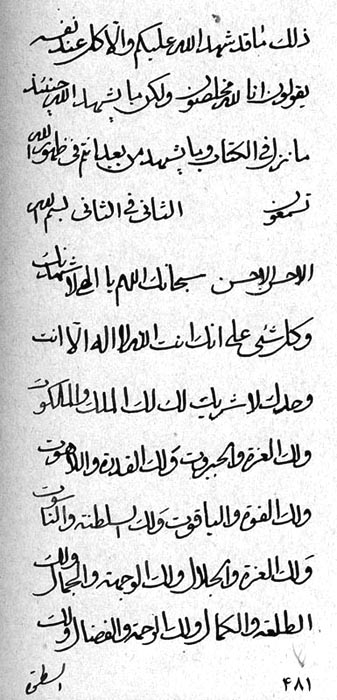 ذلك ما قد شهد الله عليكم والا كل عند نفسه
يقولون انا لله مخلصون ولكن ما يشهد الله حينئذ
ما نزل في الكتاب وما يشهد من بعد انتم في ظهور الله
تسمعون الثاني في الثاني بسم الله
الاحسن الاحسن سبحانك اللهم يا الهي لاشهدنك
وكل شئ على انك انت الله لا اله الا انت
وحدك لا شريك لك لك الملك والملكوت
ولك العزة والجبروت ولك القدرة واللاهوت
ولك القوة والياقوت ولك السلطنة والناسوت
ولك العزة والجلال ولك الوجهة والجمال ولك
الطلعة والكمال ولك الرحمة والفضال ولك
السطوة
٤٨١